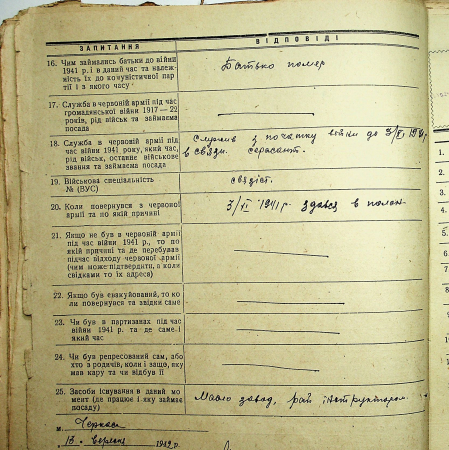 ЗАПИТАННЯ
ВІДПОВІДІ
16. Чим займались батьки до війни
1941 р. і в даний час та належ-
ність їх до комуністичної пар-
тії і з якого часу
Батько помер
17. Служба в червоній армії під час
громадянської війни 1917—22
років, рід військ та займаєма
посада
18. Служба в червоній армії під
час війни 1941 року, який час,
рід військ, останнє військове
звання та займаєма посада
Служив з початку війни до 7/VI 1941
в связи. сержант.
19. Військова спеціальність
№ (ВУС)
связіст.
20. Коли повернувся з червоної
армії та по якій причині
7/VI 1941 р. здався в полон
21. Якщо не був в червоній армії
під час війни 1941 р., то по
якій причині та де перебував
підчас відходу червоної армії
(чим може підтвердити, а коли
свідками то їх адреса)
22. Якщо був евакуйований, то ко-
ли повернувся та звідки саме
23. Чи був в партизанах під час
війни 1941 р. та де саме і
який час
24. Чи був репресований сам, або
хто з родичів, коли і защо, яку
мав кару та чи відбув її
25. Засоби існування в даний мо-
мент (де працює і яку займає
посаду)
Масло завод, рай інструктором.
м. Черкаси
13. вересня 1942 р.
1.
2.
3.
4.
5.
6.
7.
8